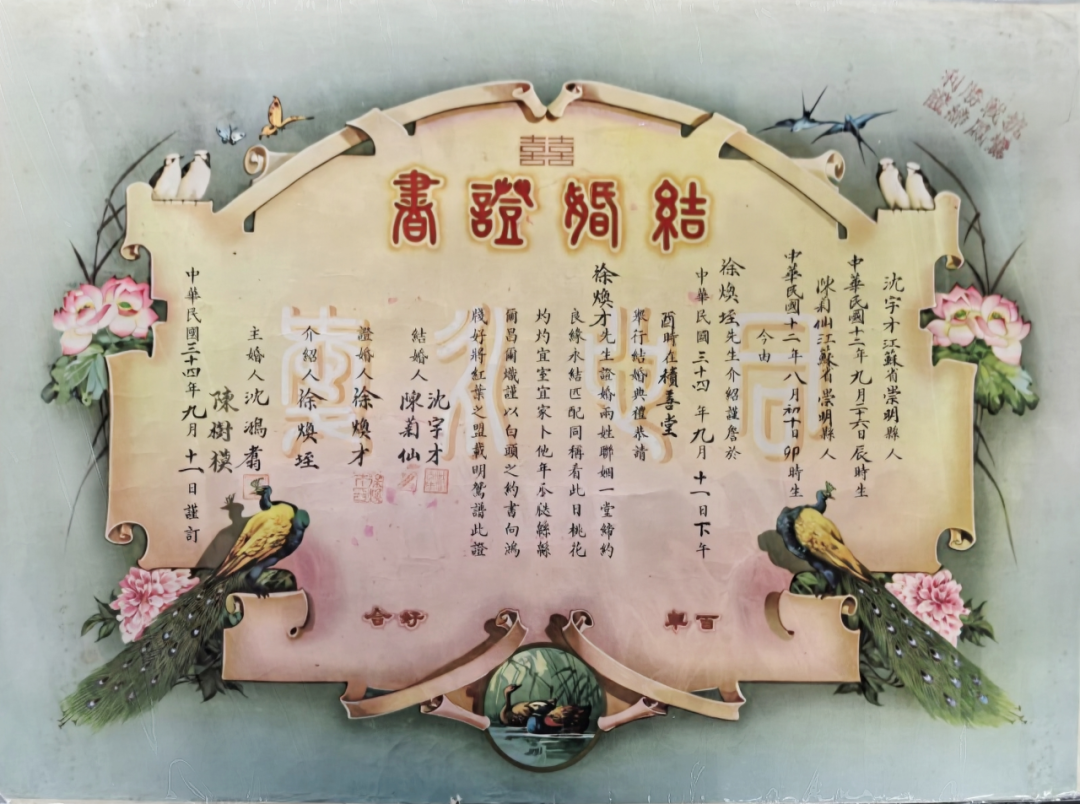 囍
結婚證書
沈宇才江蘇省崇明縣人
中華民國十二年九月二十六日辰時生
陳菊仙江蘇省崇明縣人
中華民國十二年八月初十日卯時生
今由
徐煥坖先生介紹謹詹於
中華民國三十四年九月十一日下午
酉時在積善堂
舉行結婚典禮恭請
徐煥才先生證婚兩姓聯姻一堂締約
良緣永結匹配同稱看此日桃花
灼灼宜室宜家卜他年瓜瓞緜緜
爾昌爾熾謹以白頭之約書向鴻
牋好將紅葉之盟載明鴛譜此證
結婚人沈宇才
陳菊仙
證婚人徐煥才
介紹人徐煥坖
主婚人沈鴻翥
陳樹
中華民國三十四年九月十一日謹訂
百年好合